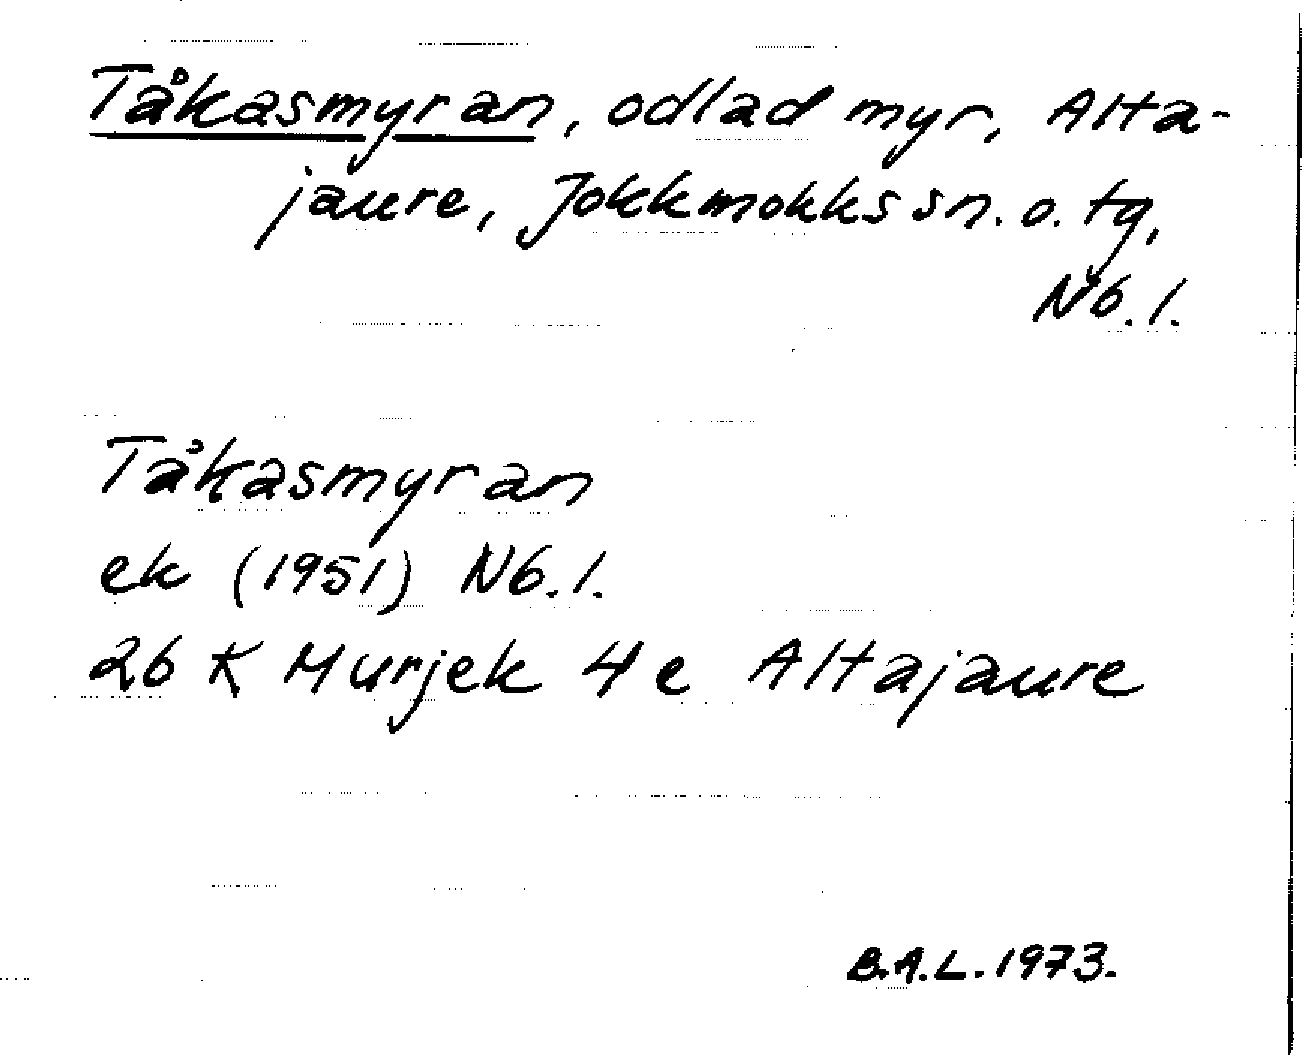 Tåkasmyran, odlad myr, Alta-
jaure, Jokkmokks sn. o. tg,
Nb. l.
Tåkasmyran
ek (1951) Nb. l.
26 K Murjek 4 e Altajaure
B.A.L. 1973.